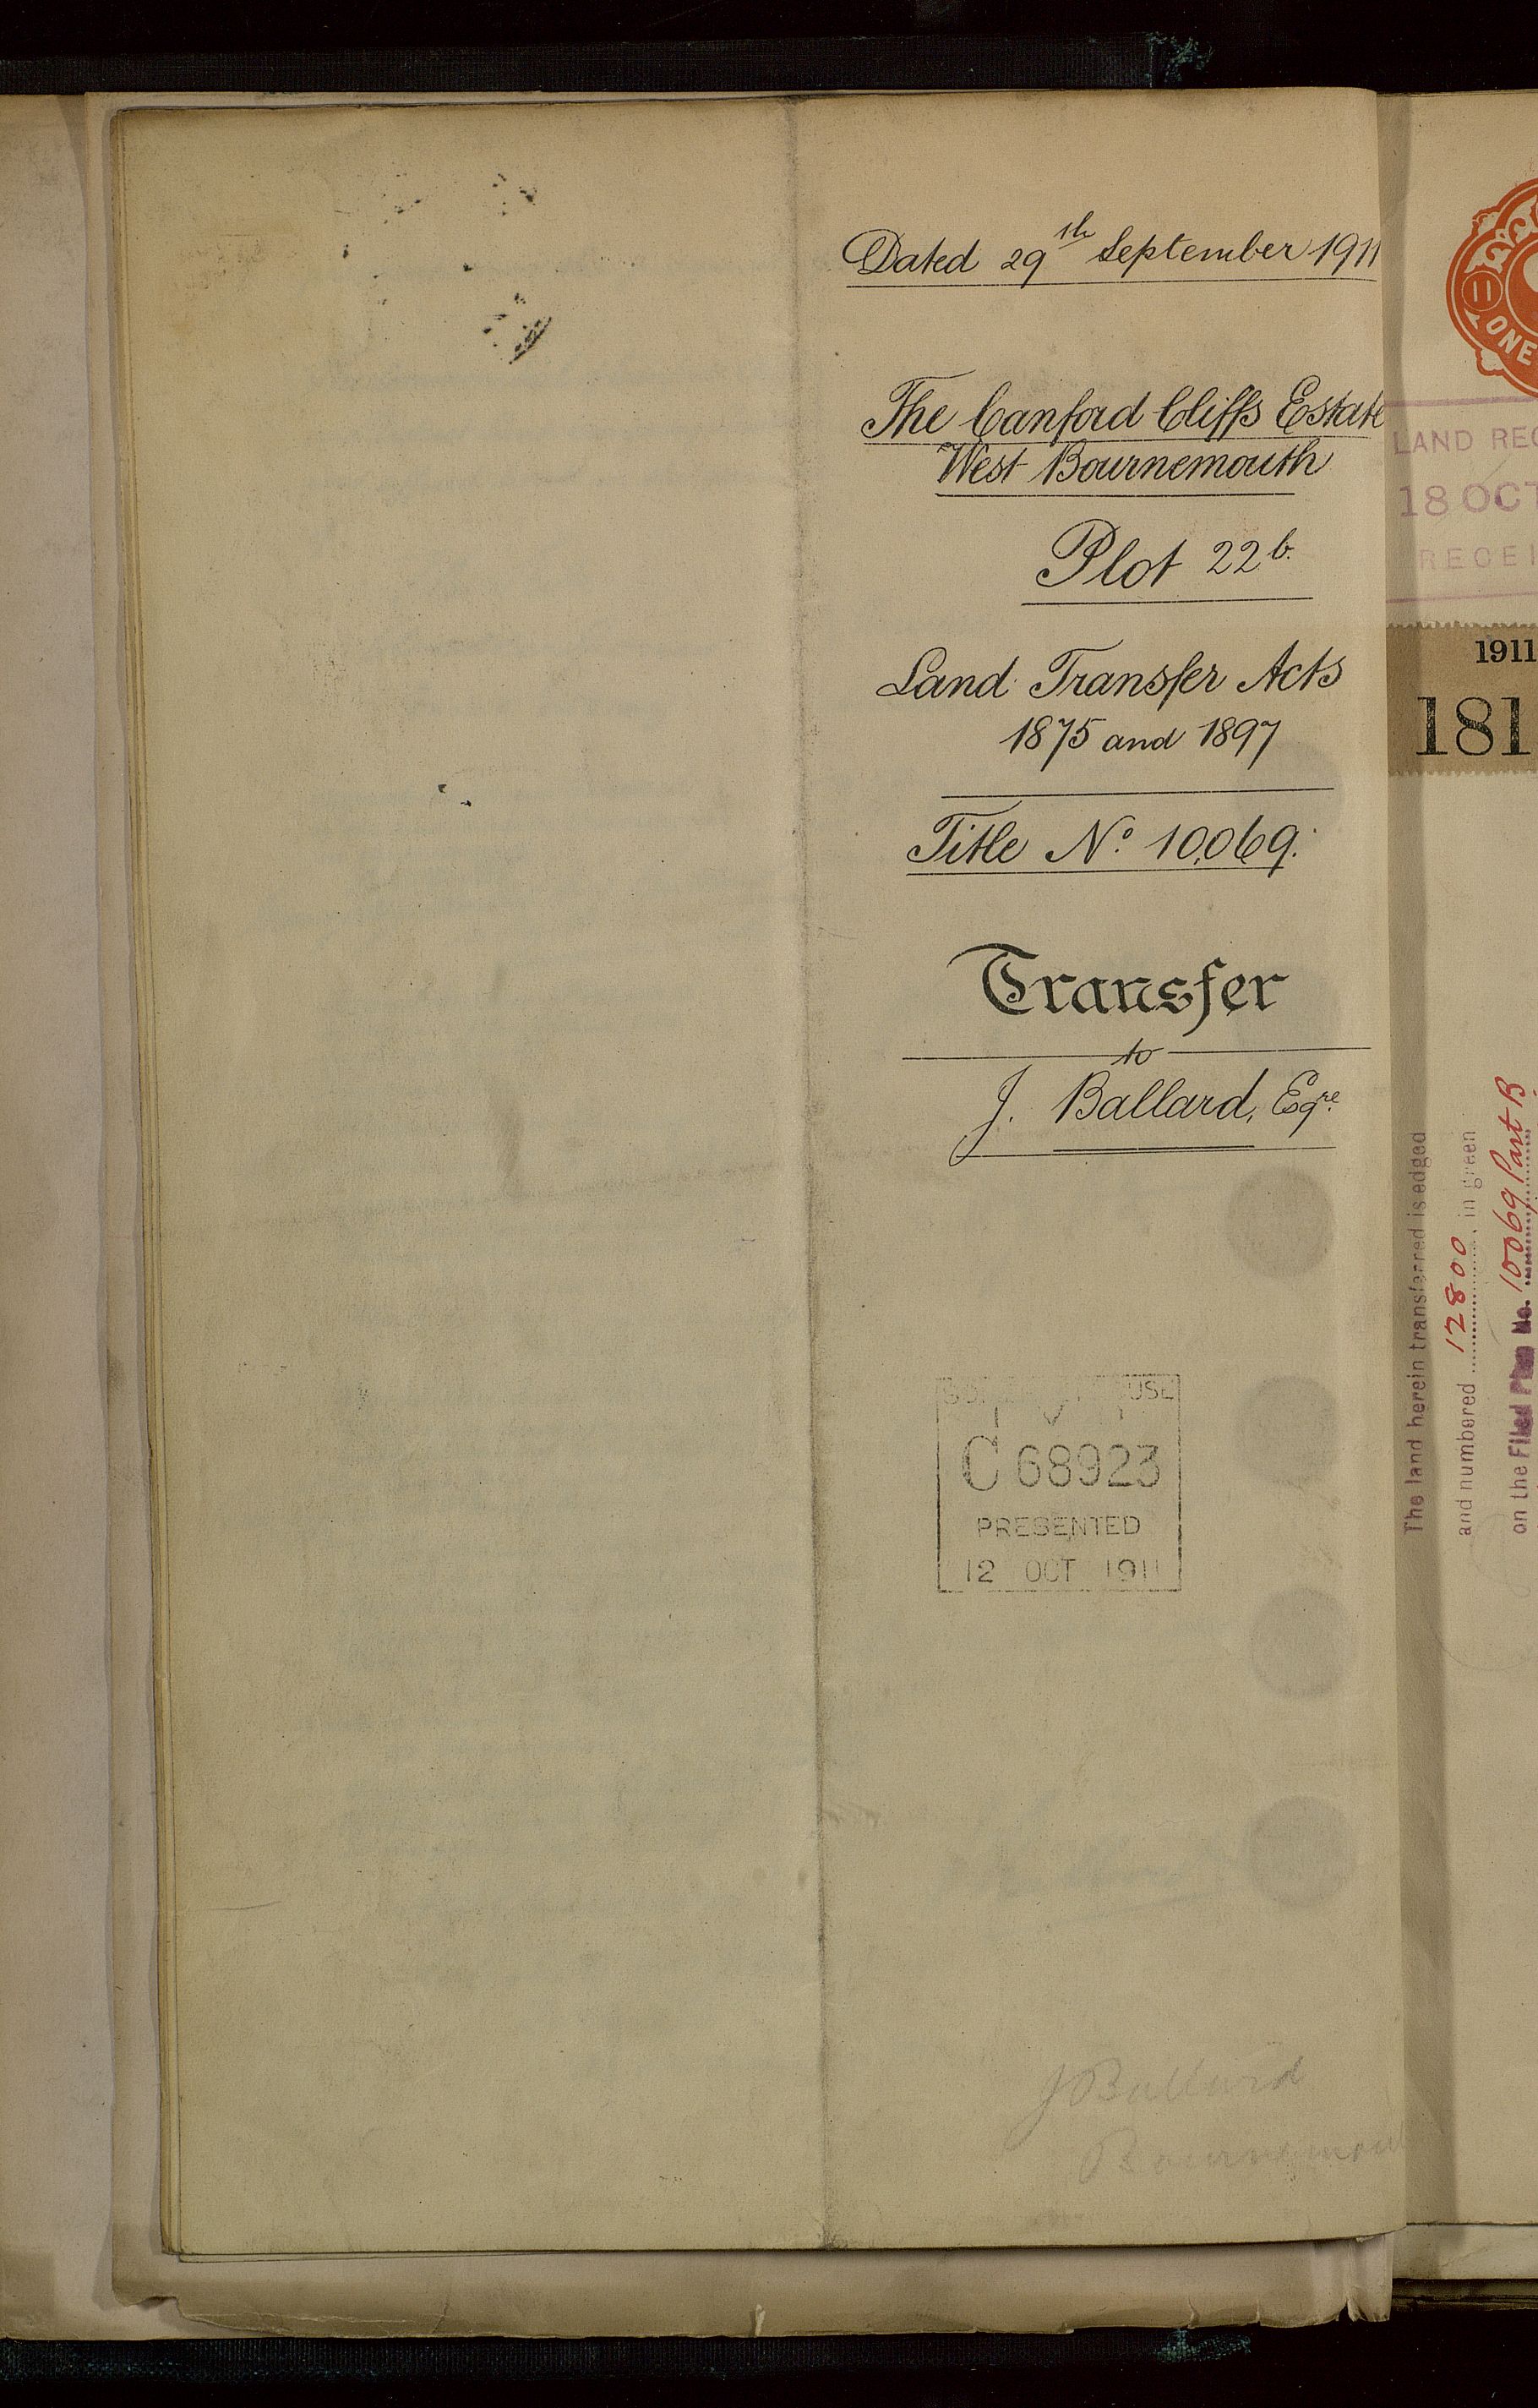 Dated 29th September 1911
The Canford Cliffs Estate
West Bournemouth
Plot 22b.
Land Transfer Acts
1875 and 1897
Title No. 10,069.
Transfer
to
J. Ballard, Esqre.
C 68923
PRESENTED
12 OCT 1911
J Ballard
11
ONE
LAND
18 OCT
1911
181
The land herein transferred is edged
and numbered 12800, in green
on the Filed Plan No. 10069 Part B.